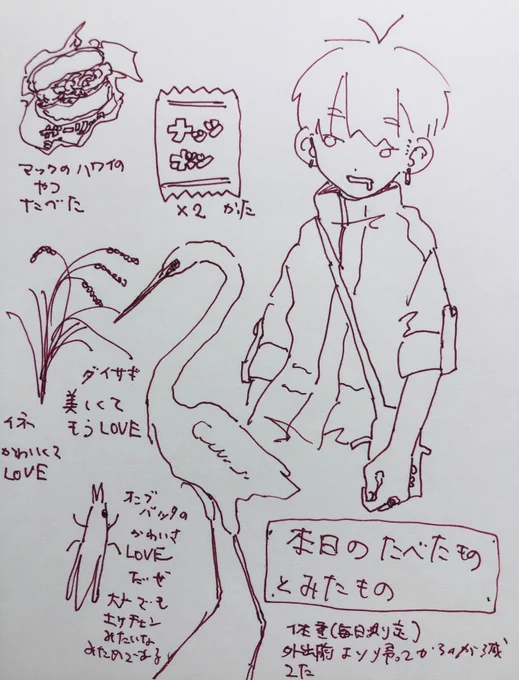 マックのハワイの
やつ
たべた
ナッツ
ボン
×2 かた
ダイサギ
美しくて
もうLOVE
イネ
かわいくて
LOVE
オンブ
バッタの
かわいさ
LOVE
だぜ
大人でも
みたいな
本日のたべたもの
とみたもの
体重(毎日測定)
外出前より帰ってからのが減
てた